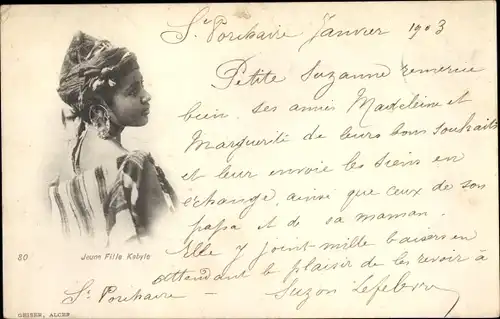 St Porchaire Janvier 1903
Petite Suzanne remercie
bien ses amies Madeleine et
Marguerite de leurs bons souhaits
et leur envoie les siens en
échange, ainsi que ceux de son
papa et de sa maman.
Elle y joint mille baisers en
attendant le plaisir de les revoir à
St Porchaire — Suzon Lefebvre
80 Jeune Fille Kabyle
GEISER, ALGER